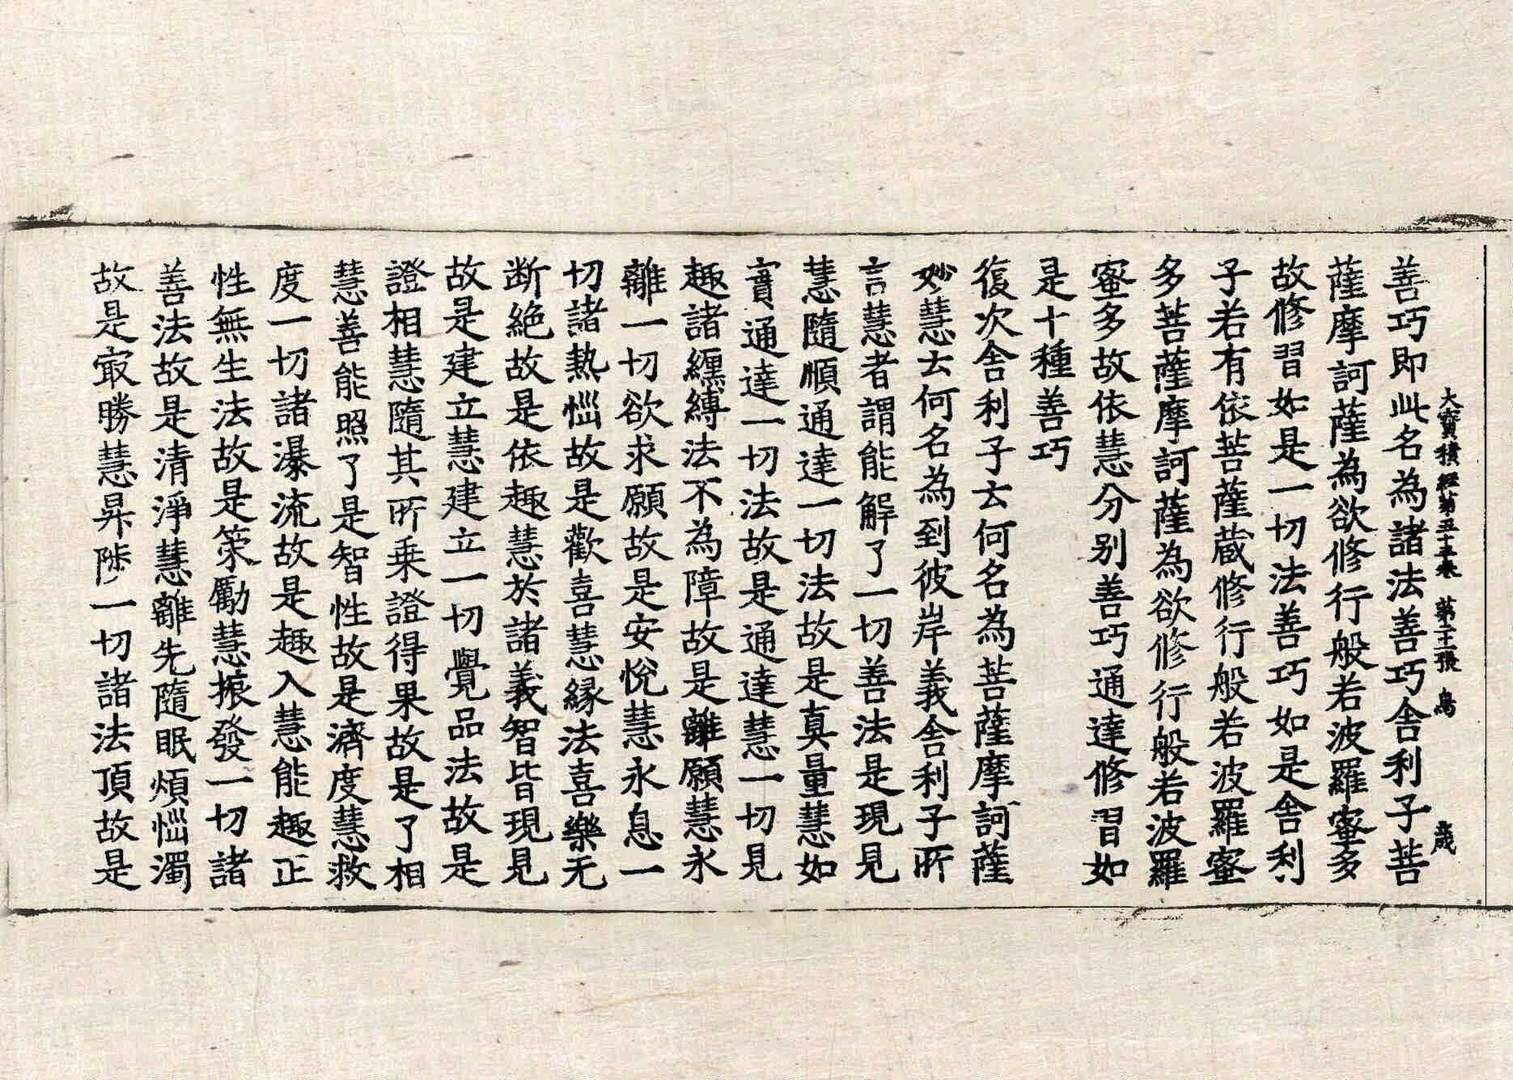 大寶積經第五十五卷 第二十二張 鳥 歲
善巧即此名為諸法善巧舍利子菩
薩摩訶薩為欲修行般若波羅蜜多
故修習如是一切法善巧如是舍利
子若有依菩薩蔵修行般若波羅蜜
多菩薩摩訶薩為欲修行般若波羅
蜜多故依慧分别善巧通達修習如
是十種善巧
復次舍利子云何名為菩薩摩訶薩
妙慧云何名為到彼岸義舍利子所
言慧者謂能解了一切善法是現見
慧隨順通達一切法故是真量慧如
實通達一切法故是通達慧一切見
趣諸纏縛法不為障故是離願慧永
離一切欲求願故是安悅慧永息一
切諸熱惱故是歡喜慧緣法喜樂无
断絶故是依趣慧於諸義智皆現見
故是建立慧建立一切覺品法故是
證相慧隨其所乗證得果故是了相
慧善能照了是智性故是濟度慧救
度一切諸瀑流故是趣入慧能趣正
性無生法故是策勵慧振發一切諸
善法故是清淨慧離先隨眠煩惱濁
故是冣勝慧昇陟一切諸法頂故是